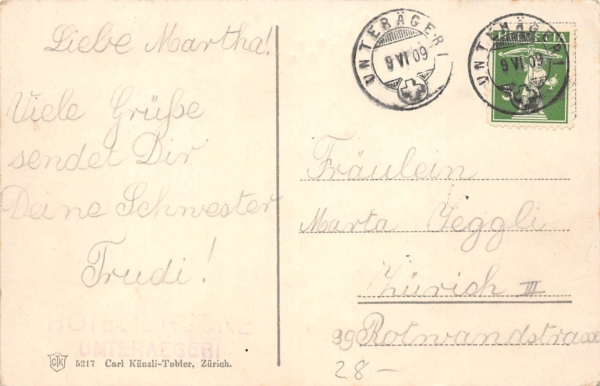 Liebe Martha!
Viele Grüße
sendet Dir
Deine Schwester
Trudi!
UNTERÄGERI
9 VI 09
UNTERÄGERI
9 VI 09
HELVETIA
Fräulein
Marta Jeggli
Zürich III
99 Rotwandstrasse
28-
HOTEL
UNTERAEGERI
CTK 5217 Carl Künzli-Tobler, Zürich.